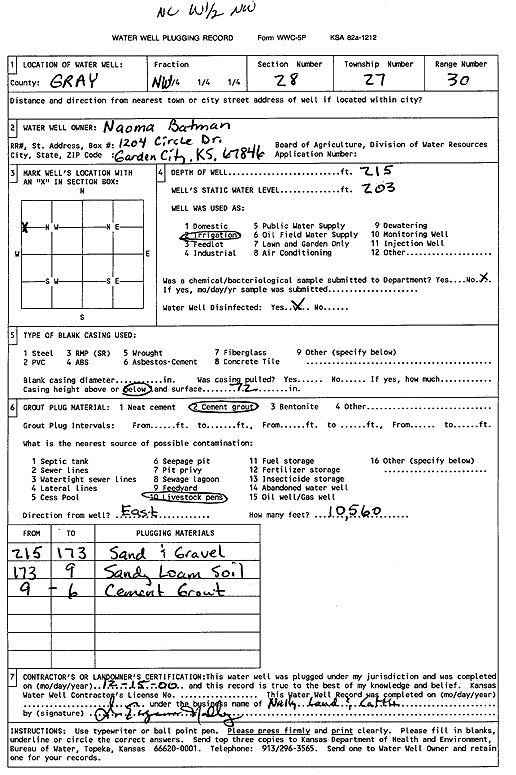 NC W1/2 NW
WATER WELL PLUGGING RECORD Form WWC-5P KSA 82a-1212
1 LOCATION OF WATER WELL: Fraction Section Number Township Number Range Number
County: GRAY NW/4 1/4 1/4 28 27 30
Distance and direction from nearest town or city street address of well if located within city?
2 WATER WELL OWNER: Naoma Batman
RR#, St. Address, Box #: 1204 Circle Dr. Board of Agriculture, Division of Water Resources
City, State, ZIP Code : Garden City, KS, 67846 Application Number:
3 MARK WELL'S LOCATION WITH AN "X" IN SECTION BOX:
N
X N W N E
W E
S W S E
S
4 DEPTH OF WELL..................ft. 215
WELL'S STATIC WATER LEVEL..........ft. 203
WELL WAS USED AS:
1 Domestic 5 Public Water Supply 9 Dewatering
2 Irrigation 6 Oil Field Water Supply 10 Monitoring Well
3 Feedlot 7 Lawn and Garden Only 11 Injection Well
4 Industrial 8 Air Conditioning 12 Other...........
Was a chemical/bacteriological sample submitted to Department? Yes....No.X.
If yes, mo/day/yr sample was submitted..................
Water Well Disinfected: Yes.X.. No......
5 TYPE OF BLANK CASING USED:
1 Steel 3 RMP (SR) 5 Wrought 7 Fiberglass 9 Other (specify below)
2 PVC 4 ABS 6 Asbestos-Cement 8 Concrete Tile
Blank casing diameter...........in. Was casing pulled? Yes...... No...... If yes, how much..........
Casing height above or below land surface.......72.......in.
6 GROUT PLUG MATERIAL: 1 Neat cement 2 Cement grout 3 Bentonite 4 Other................
Grout Plug Intervals: From......ft. to......ft., From......ft. to ......ft., From...... to......ft.
What is the nearest source of possible contamination:
1 Septic tank 6 Seepage pit 11 Fuel storage 16 Other (specify below)
2 Sewer lines 7 Pit privy 12 Fertilizer storage
3 Watertight sewer lines 8 Sewage lagoon 13 Insecticide storage
4 Lateral lines 9 Feedyard 14 Abandoned water well
5 Cess Pool 10 Livestock pens 15 Oil well/Gas well
Direction from well? East How many feet? ...10,560
FROM TO PLUGGING MATERIALS
215 173 Sand & Gravel
173 9 Sandy Loam Soil
9 - 6 Cement Grout
7 CONTRACTOR'S OR LANDOWNER'S CERTIFICATION: This water well was plugged under my jurisdiction and was completed
on (mo/day/year)..12-15-00.. and this record is true to the best of my knowledge and belief. Kansas
Water Well Contractor's License No. ............... This Water Well Record was completed on (mo/day/year)
............ under the business name of Nally Land & Cattle
by (signature)
INSTRUCTIONS: Use typewriter or ball point pen. Please press firmly and print clearly. Please fill in blanks,
underline or circle the correct answers. Send top three copies to Kansas Department of Health and Environment,
Bureau of Water, Topeka, Kansas 66620-0001. Telephone: 913/296-3565. Send one to Water Well Owner and retain
one for your records.